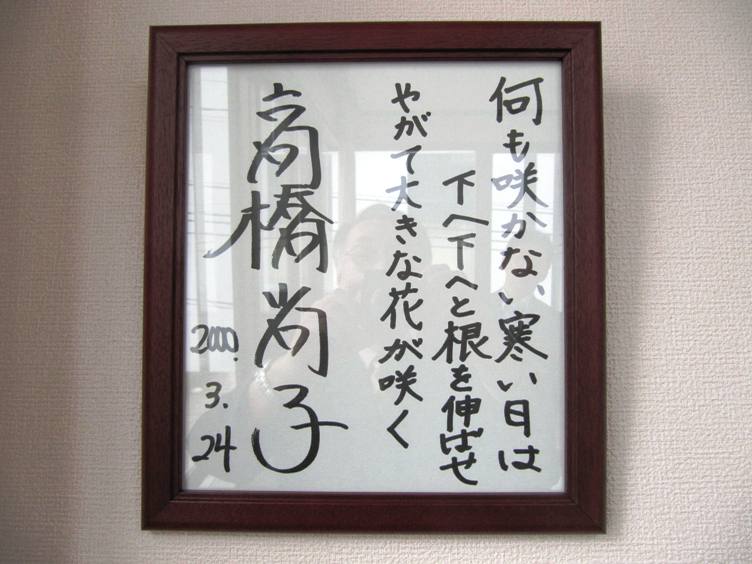 何も咲かない寒い日は
下へ下へと根を伸ばせ
やがて大きな花が咲く
高橋尚子
2000.
3.
24